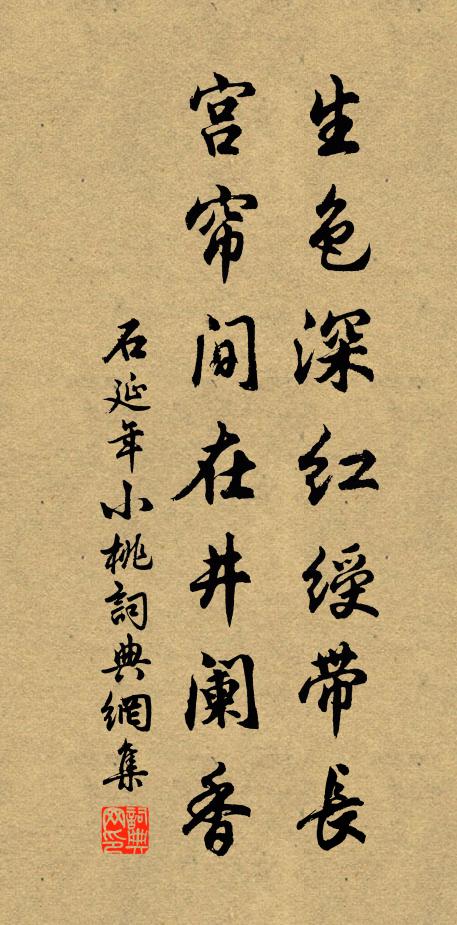 生色深红绶带長
宫帘间在井阑香
石延年小桃詞典網集
詞典网印